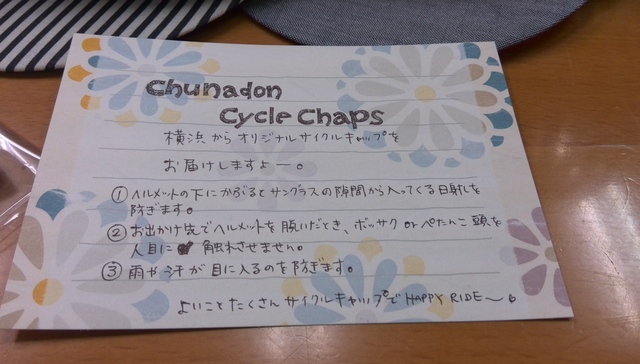 Chunadon
Cycle Chaps
横浜からオリジナルサイクルキャップを
お届けしますよー。
①ヘルメットの下にかぶるとサングラスの隙間から入ってくる日射しを
防ぎます。
②お出かけ先でヘルメットを脱いだとき、ボッサク or ぺたんこ頭を
人目に触れさせません。
③雨や汗が目に入るのを防ぎます。
よいことたくさんサイクルキャップで HAPPY RIDE〜